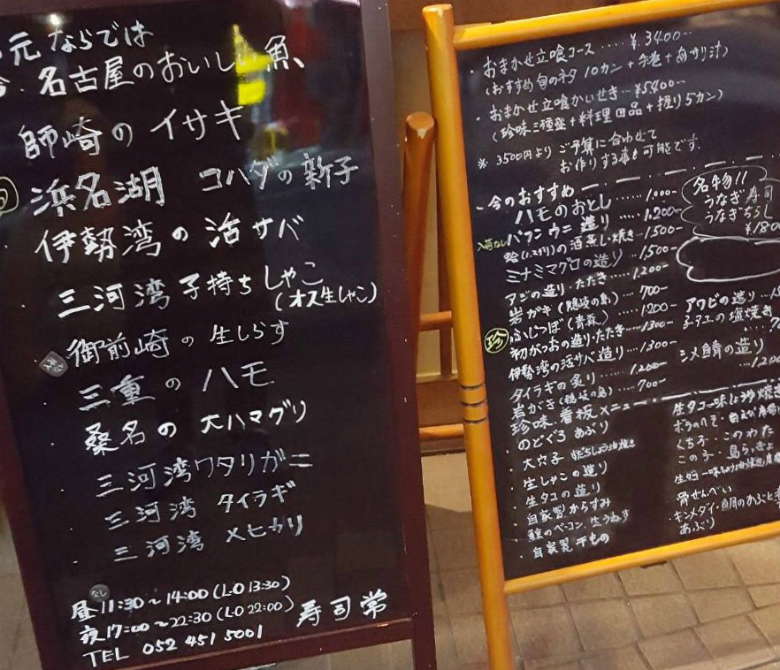 元 ならでは
名古屋のおいしい魚
師崎の イサキ
浜名湖 コハダの新子
伊勢湾の 活サバ
三河湾 子持ちしゃこ
(オス生しゃこ)
御前崎の 生しらす
三重の ハモ
桑名の 大ハマグリ
三河湾 ワタリガニ
三河湾 タイラギ
三河湾 メヒカリ
なし
昼11:30～14:00 (L・O 13:30)
夜17:00～22:30 (L・O 22:00)
TEL 052 451 5001
寿司常
・おまかせ立喰コース ‥‥ ¥3400-
(おすすめ旬のネタ 10カン + 手巻 + あサリ汁)
・おまかせ立喰かいせき‥¥5400-
(珍味三種盛 + 料理四品 + 握り5カン)
※ 3500円より ご予算に合わせて
お作りする事も可能です.
今のおすすめ
ハモのおとし ‥‥ 1,000-
入荷なし バフンウニ 造り ‥‥ 1,200-
酒蒸し・焼き‥1,500-
ミナミマグロの造り ‥‥1,500-
アジの造り・たたき‥‥1,200-
岩がき ‥‥ 700-
珍 ふじつぼ (青森) 1200-
初がつおの造り・たたき‥1300-
伊勢湾の活サバ造り‥1300-
タイラギの炙り
岩がき ‥‥700-
珍味.看板メニュー
・のどぐろ あぶり
・大穴子
・生しゃこの造り
・生タコの造り
・自家製からすみ
・鯨のベーコン
・自家製 干もの
名物!!
うなぎ寿司
うなぎちらし
¥180
アワビの造り
塩焼き
シメ鯖の造り
くち子・このわた
この子・
骨せんべい
キンメダイ・
あぶり